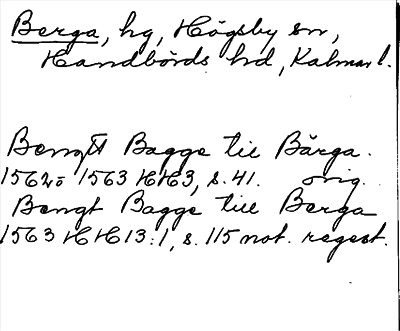 Berga, hg, Högsby sn,
Handbörds hd, Kalmar l.
Bengtt Bagge til Bärga.
1562 o 1563 HH3, s. 41. orig.
Bengt Bagge till Berga
1563 HH13:1, s. 115 not. regest.